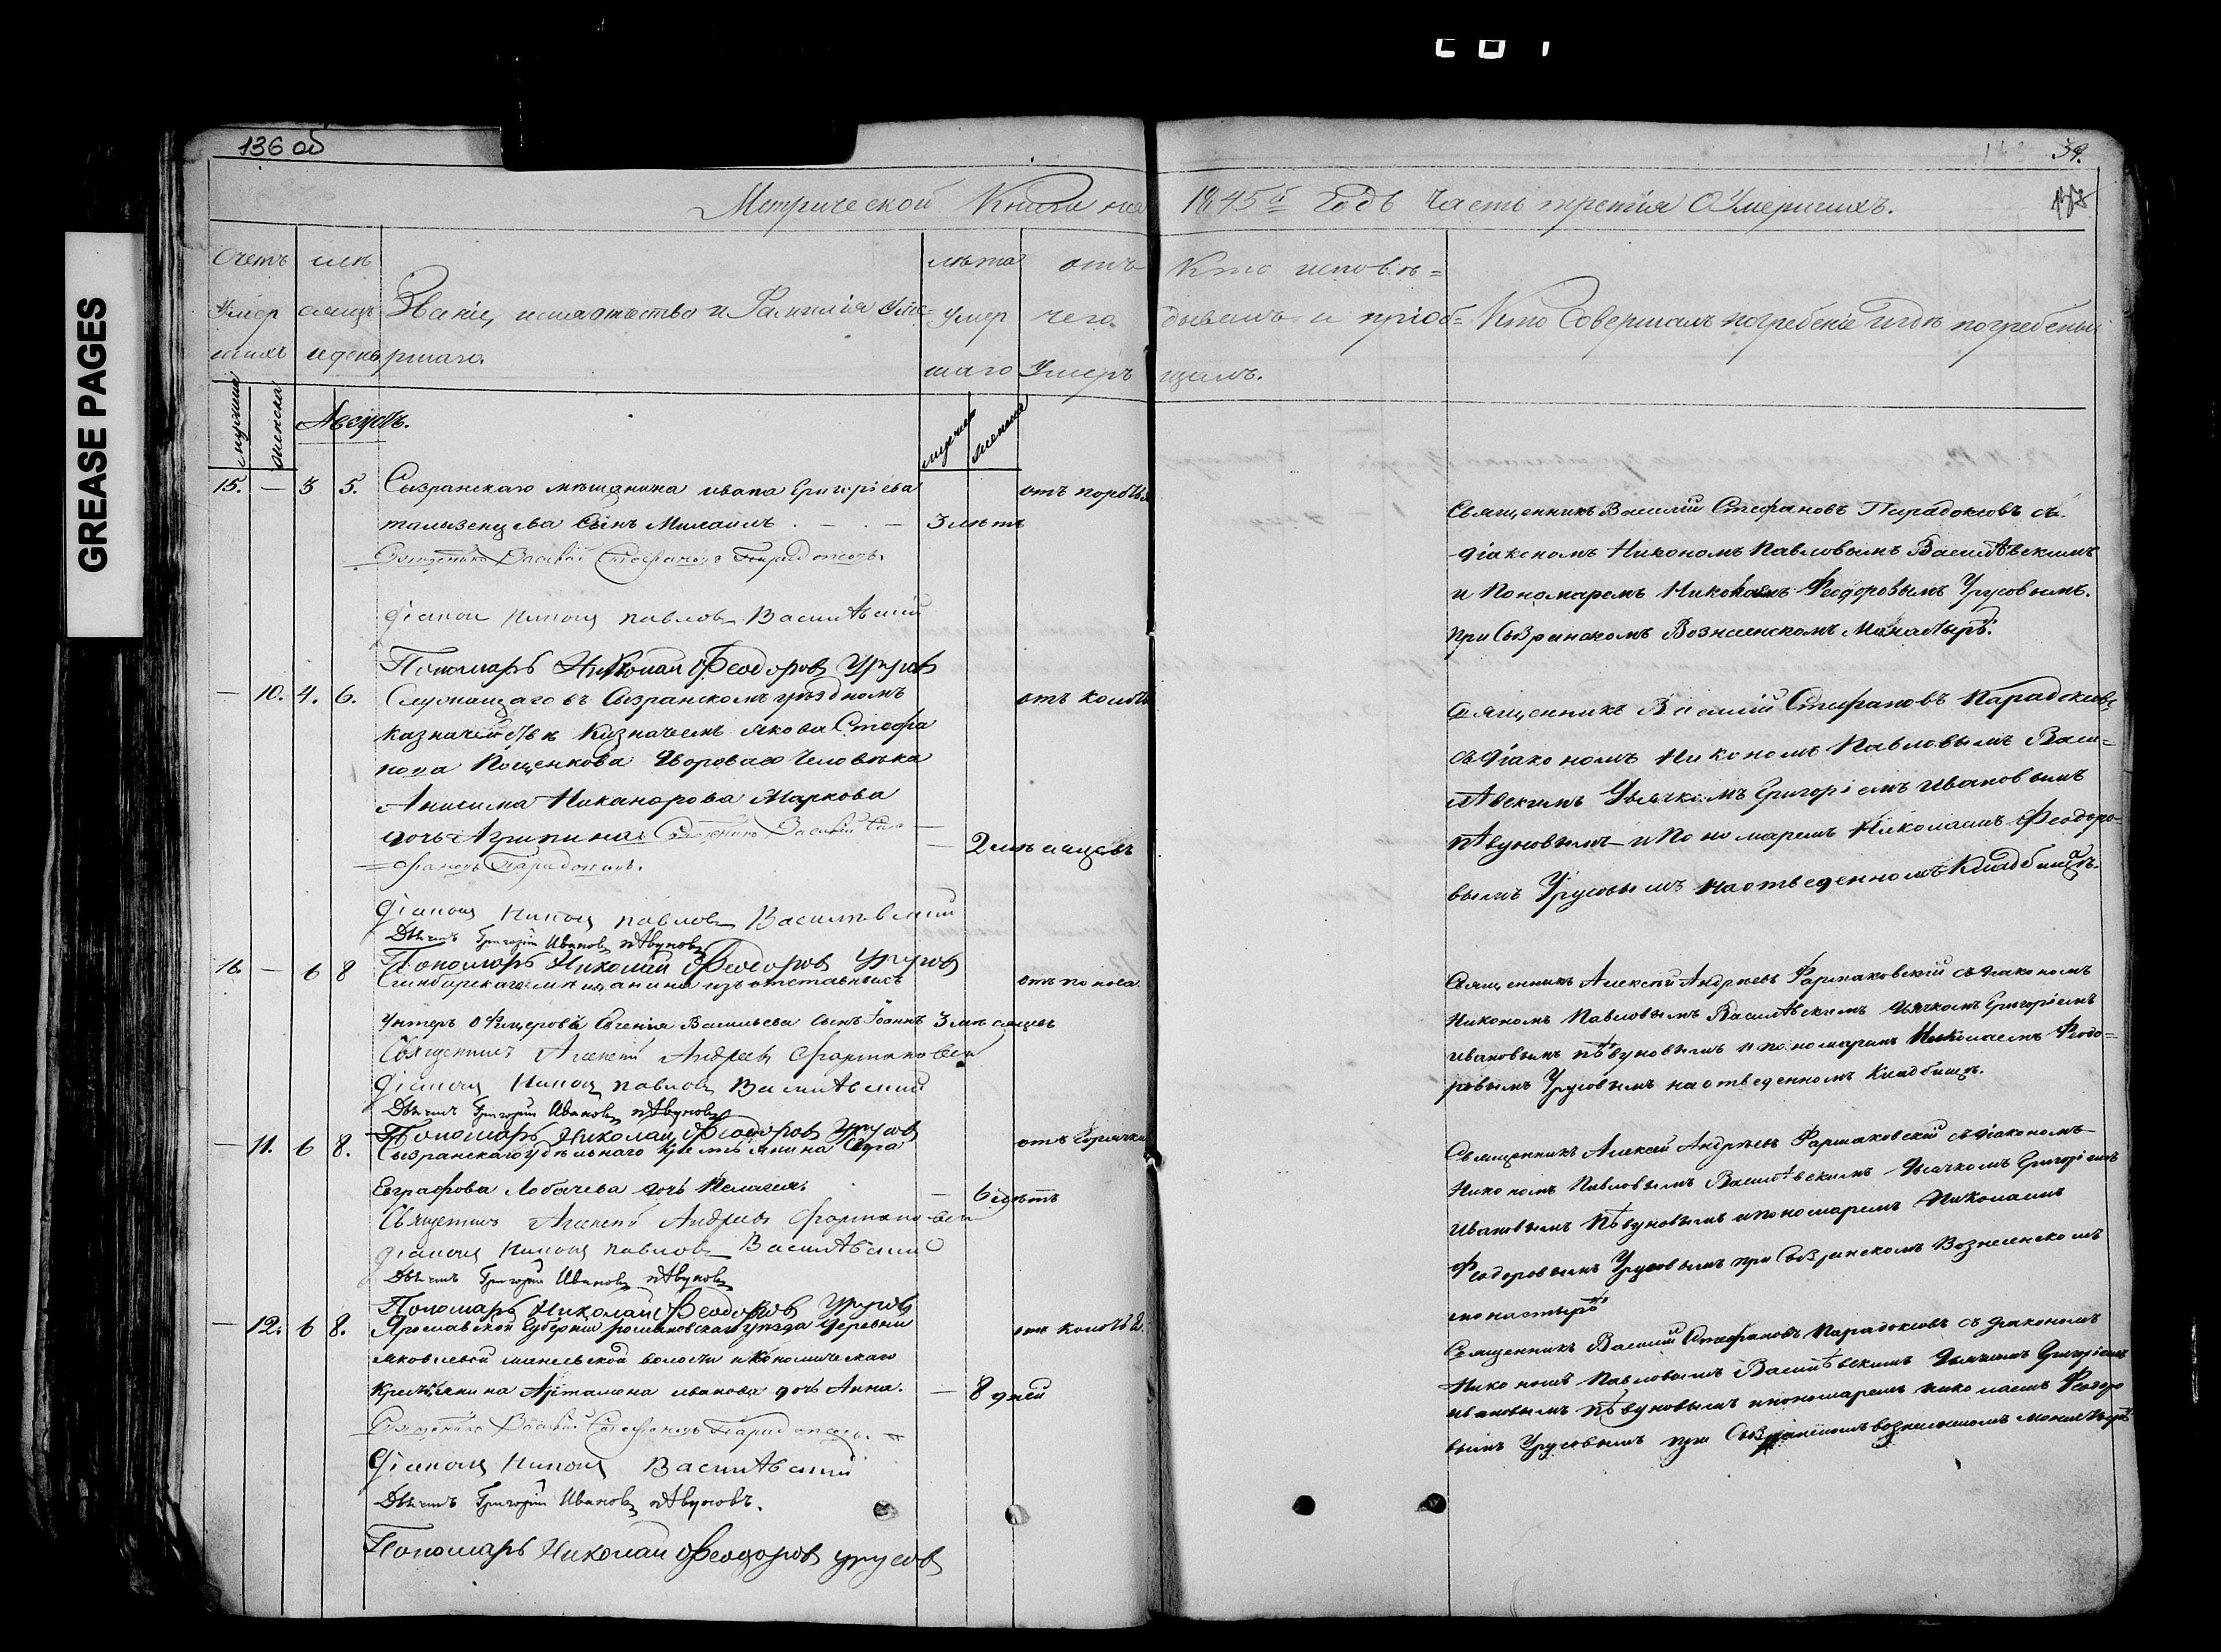 GREASE PAGES
136 об
39.
Метрической Книги на 1845й Годъ часть третія О Умершихъ.
Счетъ умершихъ
мѣсяцъ и день
Званіе, имя отчество и Фамилія умершаго.
лѣта умершаго
отъ чего умеръ
Кто исповѣдывалъ и пріобщалъ.
Кто Совершалъ погребеніе и гдѣ погребены
мужеска
женска
Августъ.
мужеска
женска
15. — 3 5. Сызранскаго мѣщанина Ивана Григоріева
отъ
3 лѣтъ
сынъ
Священникъ Василій Стефановъ Парадоксовъ
Діаконъ Никонъ Павловъ
Пономарь Николай Феодоровъ Урусовъ
Священникъ Василій Стефановъ Парадоксовъ съ
діакономъ Никономъ Павловымъ
и Пономаремъ Николаемъ Феодоровымъ Урусовымъ.
при Сызранскомъ Вознесенскомъ Монастырѣ.
— 10. 4. 6. Служащаго въ Сызранскомъ уѣздномъ
казначействѣ Казначеемъ Якова Стефа
нова Пощенкова Двороваго Человѣка
Анисима Никанорова Маркова
дочь Агрипина Священникъ Василій Сте
фановъ Парадоксовъ.
2 мѣсяцевъ
Діаконъ Никонъ Павловъ
Дьячекъ Григорій Ивановъ Пѣвуновъ
Пономарь Николай Феодоровъ Урусовъ
Священникъ Василій Стефановъ Парадоксовъ
съ діакономъ Никономъ Павловымъ
Дьячкомъ Григоріемъ Ивановымъ
Пѣвуновымъ и Пономаремъ Николаемъ Феодоро-
вымъ Урусовымъ на отведенномъ Кладбищѣ.
16 — 6 8 Симбирскаго мѣщанина изъ отставныхъ
отъ поноса.
Унтеръ Офицеровъ Евгенія Васильева сынъ Іоаннъ 3 мѣсяцевъ
Священникъ Алексѣй Андреевъ Фармаковскій
Діаконъ Никонъ Павловъ
Дьячекъ Григорій Ивановъ Пѣвуновъ
Пономарь Николай Феодоровъ Урусовъ
Священникъ Алексѣй Андреевъ Фармаковскій съ діакономъ
Никономъ Павловымъ Дьячкомъ Григоріемъ
Ивановымъ Пѣвуновымъ и пономаремъ Николаемъ Феодо=
ровымъ Урусовымъ на отведенномъ Кладбищѣ.
— 11. 6 8. Сызранскаго удѣльнаго Крестьянина
отъ горячки
Евграфова Лобачева дочь Пелагея.
6 лѣтъ
Священникъ Алексѣй Андреевъ Фармаковскій
Діаконъ Никонъ Павловъ
Дьячекъ Григорій Ивановъ Пѣвуновъ
Пономарь Николай Феодоровъ Урусовъ
Священникъ Алексѣй Андреевъ Фармаковскій съ діакономъ
Никономъ Павловымъ Дьячкомъ Григоріемъ
Ивановымъ Пѣвуновымъ и пономаремъ Николаемъ
Феодоровымъ Урусовымъ при Сызранскомъ Вознесенскомъ
монастырѣ
— 12. 6 8. Ярославской Губерніи романовскаго уѣзда деревни
Яковлевой волости экономическаго
Крестьянина Артамона Иванова дочь Анна. — 8 дней
Священникъ Василій Стефановъ Парадоксовъ.
Діаконъ Никонъ
Дьячекъ Григорій Ивановъ Пѣвуновъ.
Пономарь Николай Феодоровъ Урусовъ
Священникъ Василій Стефановъ Парадоксовъ съ діакономъ
Никономъ Павловымъ Дьячкомъ Григоріемъ
Ивановымъ Пѣвуновымъ и пономаремъ Николаемъ Феодоро
вымъ Урусовымъ при Сызранскомъ вознесенскомъ монастырѣ